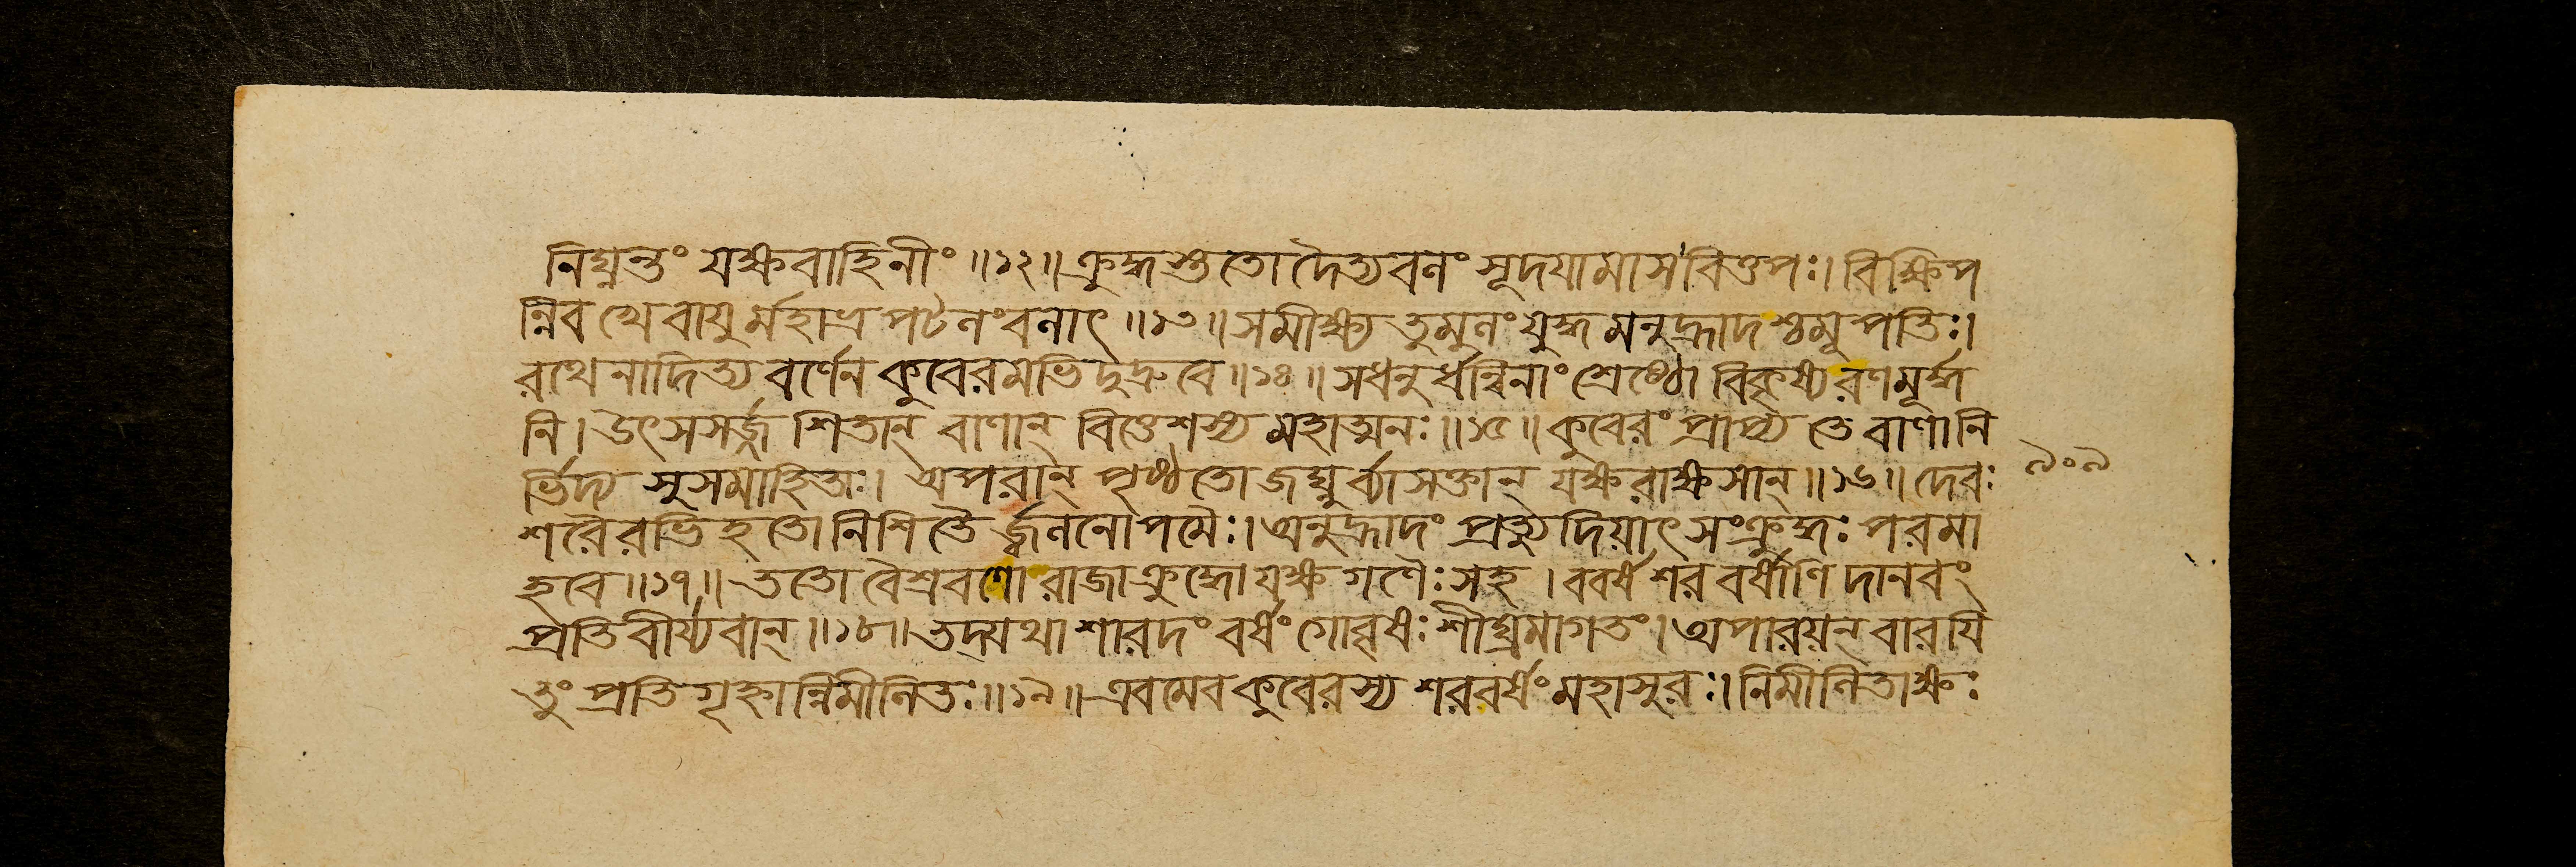 নিঘ্নন্তং যক্ষবাহিনীং ॥১২॥ ক্রুদ্ধস্ততো দৈত্যবলং সূদযামাস বিত্তপঃ। বিক্ষিপ
ন্নিব খে বাযুর্মহাভ্রপটলং বলাৎ ॥১৩॥ সমীক্ষ্য তুমুলং যুদ্ধমনুহ্লাদশ্চমূপতিঃ।
রথেনাদিত্যবর্ণেন কুবেরমভিদুদ্রুবে ॥১৪॥ স ধনুর্ধন্বিনাং শ্রেষ্ঠো বিকৃষ্য রণমূর্দ্ধ
নি। উৎসসর্জ্জ শিতান্ বাণান্ বিত্তেশস্য মহাত্মনঃ ॥১৫॥ কুবেরং প্রাপ্য তে বাণা নি
র্ভিদ্য সুসমাহিতাঃ। অপরান্ পৃষ্ঠতো জঘ্নুর্ব্যাসক্তান্ যক্ষরাক্ষসান্ ॥১৬॥ দেবঃ
শরৈরভিহতো নিশিতৈর্জ্জ্বলনোপমৈঃ। অনুহ্লাদং প্রত্যুদিয়াৎ সংক্রুদ্ধঃ পরমা
হবে ॥১৭॥ ততো বৈশ্রবণো রাজা ক্রুদ্ধো যক্ষগণৈঃ সহ। ববর্ষ শরবর্ষাণি দানবং
প্রতি বীর্য্যবান্ ॥১৮॥ তদ্যথা শারদং বর্ষং গোবৃষঃ শীঘ্রমাগতং। অপারয়ন্ বারযি
তুং প্রতিগৃহ্নান্নিমীলিতঃ ॥১৯॥ এবমেব কুবেরস্য শরবর্ষং মহাসুরঃ। নিমীলিতাক্ষঃ
৯০৯